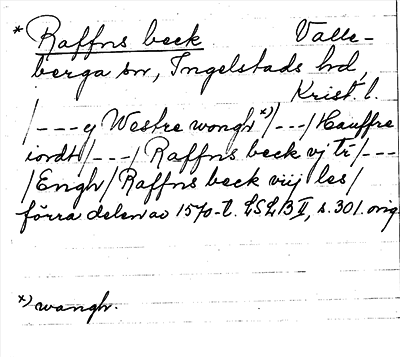 * Raffns beck Valle-
berga sn, Ingelstads hd,
Krist. l.
/---y Westre wongh x)/---/Hauffre
iordh/---/Raffns beck vj tr/---
/Engh/Raffns beck viij les/
förra delen av 1570-t. LSLB II, s. 301. orig.
x) wangh.